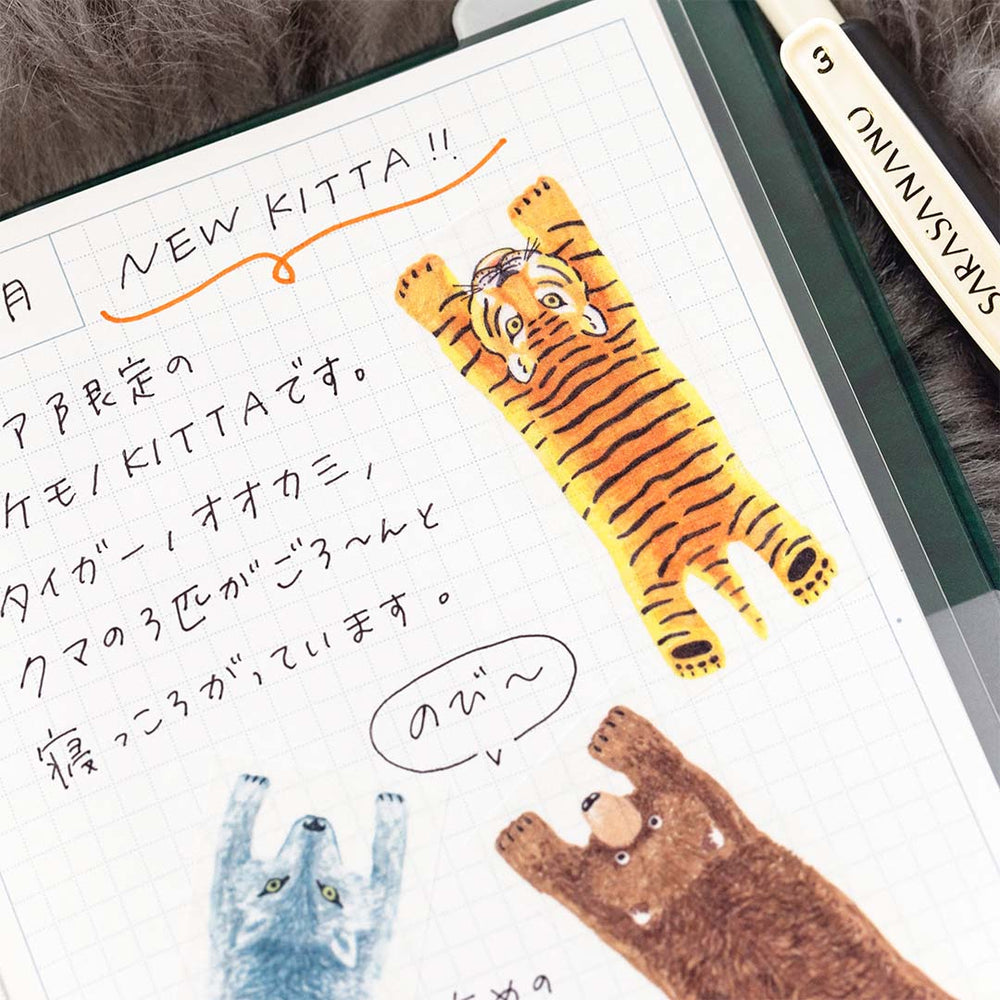 NEW KITTA!!
月
限定の
ケモノKITTAです。
タイガー、オオカミ、
クマの3匹がごろ〜んと
寝っころがっています。
のび〜
めの
SARASA NANO
3